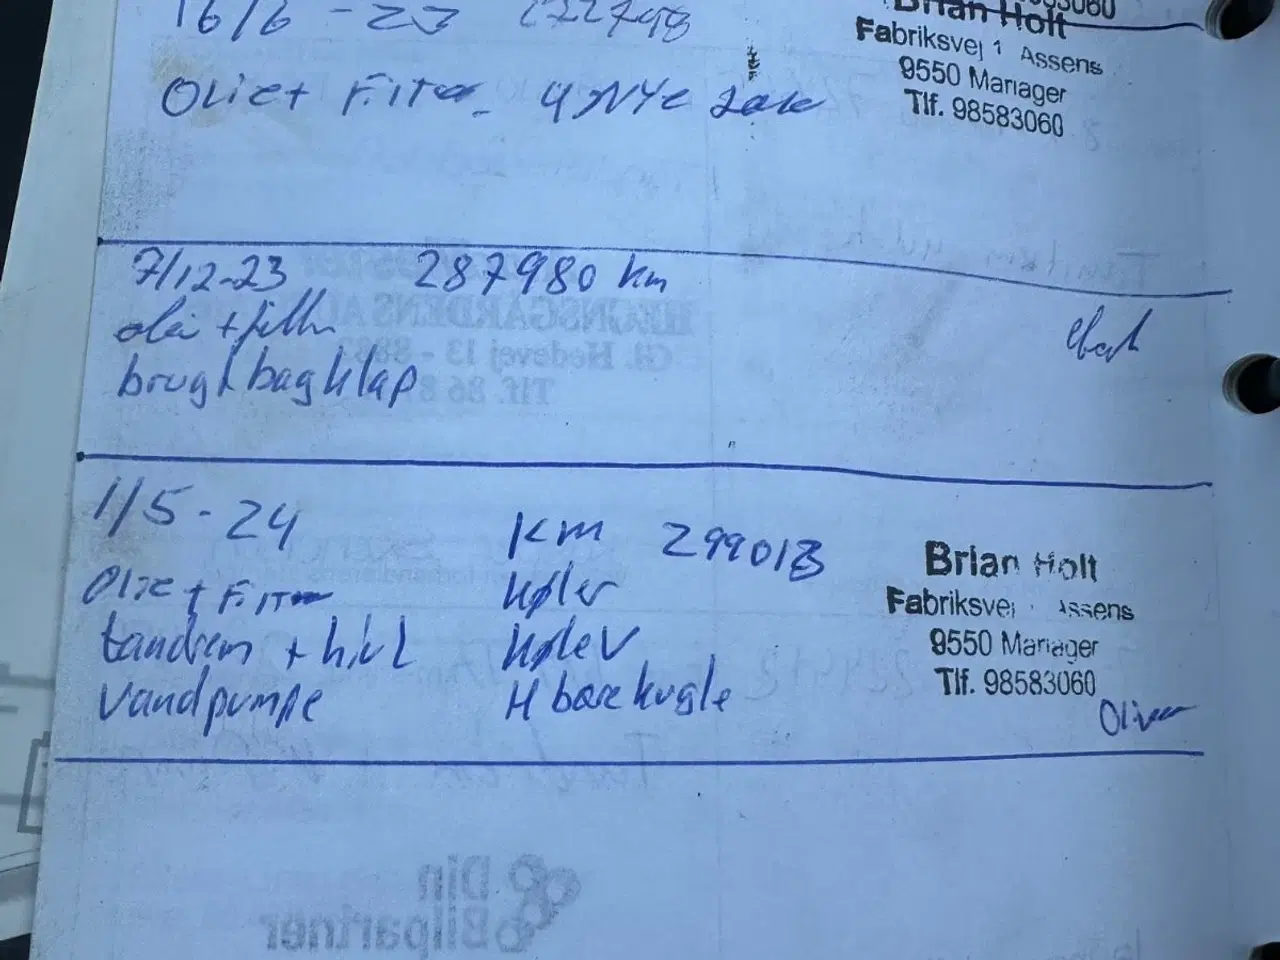 16/6 - 23 272748
Brian Holt
Fabriksvej 1 Assens
9550 Mariager
Tlf. 98583060
Olie + Filter. 4 NYE
7/12-23 287980 km
olie + filter
brugt bagklap
1/5-24 KM 299018
Brian Holt
Fabriksvej Assens
9550 Mariager
Tlf. 98583060
Olie + Filter Køler
tandrem + hjul Kølev
Vandpumpe H bærekugle
Oliver
Din
Bilpartner